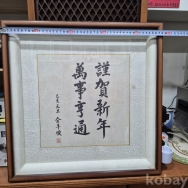 謹賀新年
萬事亨通
kobay